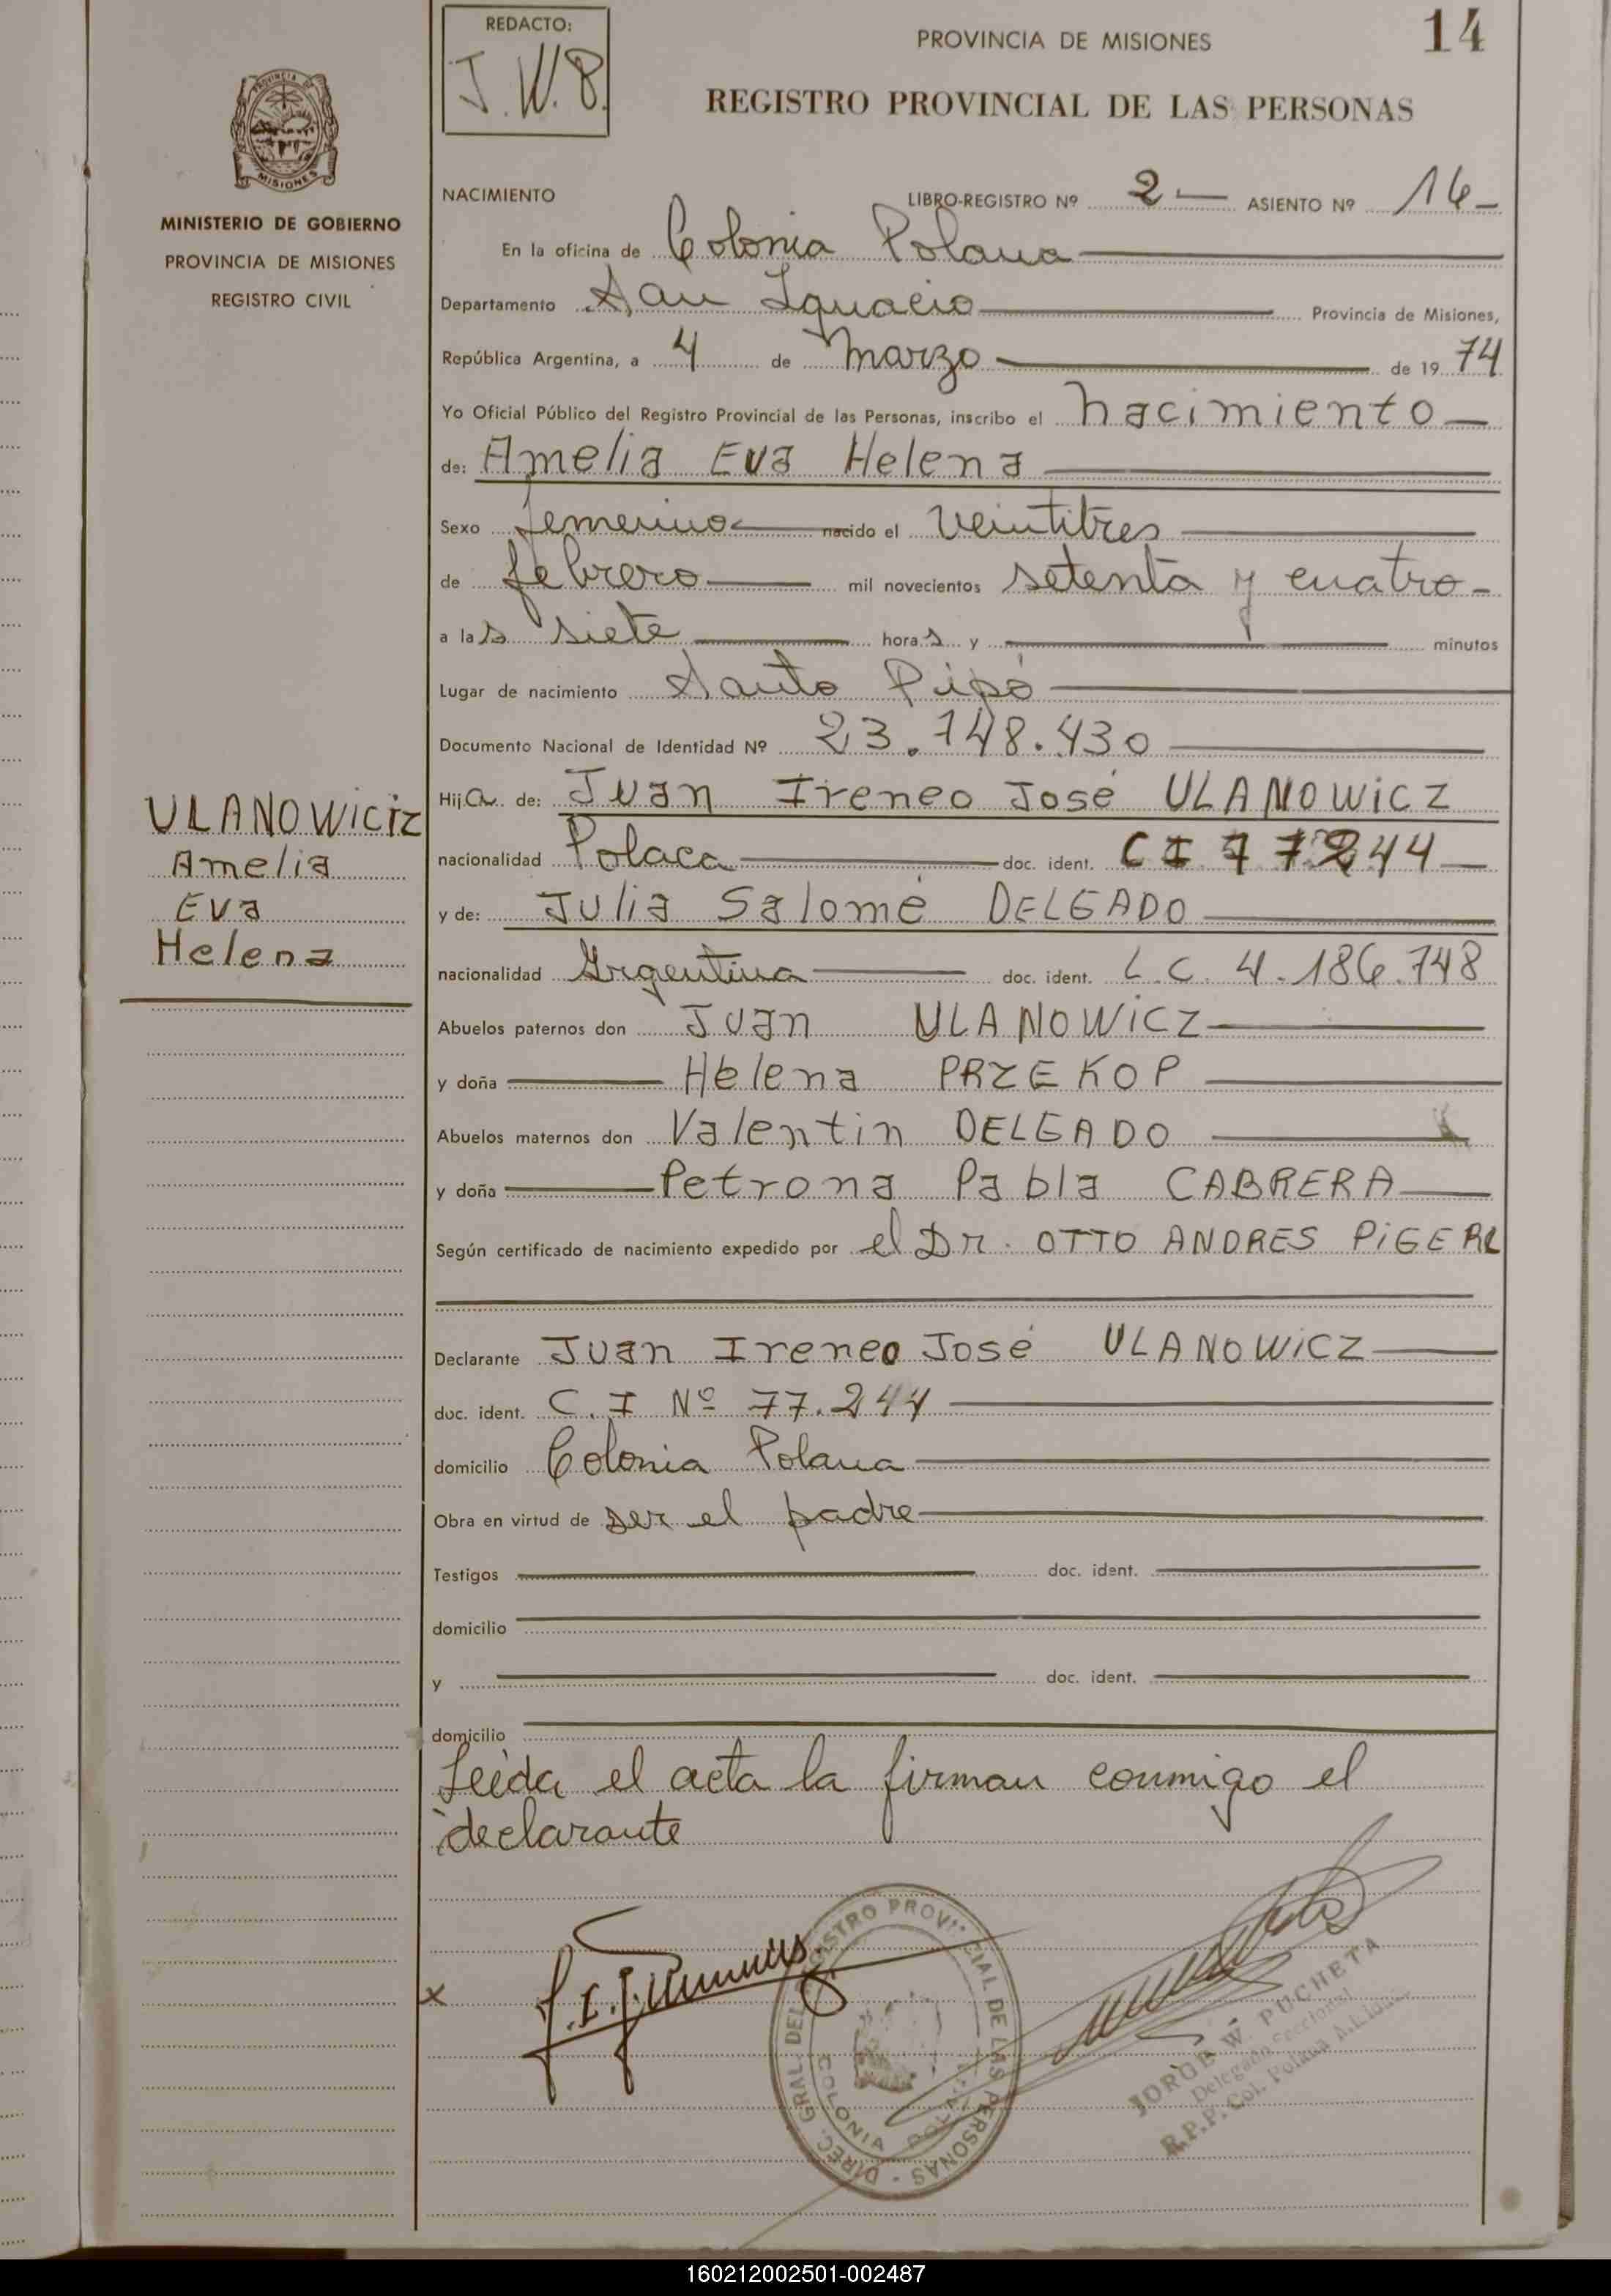 REDACTO:
J.W.P.
PROVINCIA DE MISIONES
14
REGISTRO PROVINCIAL DE LAS PERSONAS
MISIONES
MINISTERIO DE GOBIERNO
PROVINCIA DE MISIONES
REGISTRO CIVIL
NACIMIENTO LIBRO-REGISTRO Nº 2 — ASIENTO Nº 16 -
En la oficina de Colonia Polana
Departamento San Ignacio Provincia de Misiones,
República Argentina, a 4 de Marzo de 19 74
Yo Oficial Público del Registro Provincial de las Personas, inscribo el nacimiento
de: Amelia Eva Helena
Sexo femenino nacido el veintitres
de febrero mil novecientos setenta y cuatro -
a las siete horas y minutos
Lugar de nacimiento Santo Pipó
Documento Nacional de Identidad Nº 23.748.430
Hija de: Juan Ireneo José ULANOWICZ
nacionalidad Polaca doc. ident. CI 77244
y de: Julia Salomé DELGADO
nacionalidad Argentina doc. ident. L.C. 4.186.748
Abuelos paternos don Juan ULANOWICZ
y doña Helena PRZEKOP
Abuelos maternos don Valentin DELGADO
y doña Petrona Pabla CABRERA
Según certificado de nacimiento expedido por el Dr. OTTO ANDRES PIGERL
Declarante Juan Ireneo José ULANOWICZ
doc. ident. C. I Nº 77.244
domicilio Colonia Polana
Obra en virtud de ser el padre
Testigos doc. ident.
domicilio
y doc. ident.
domicilio
Leída el acta la firman conmigo el
declarante
ULANOWICZ
Amelia
Eva
Helena
x
DIREC. GRAL DEL REGISTRO PROVINCIAL DE LAS PERSONAS
COLONIA POLANA
JORGE W. PUCHETA
Delegado Seccional
R.P.P. Col. Polana
160212002501-002487